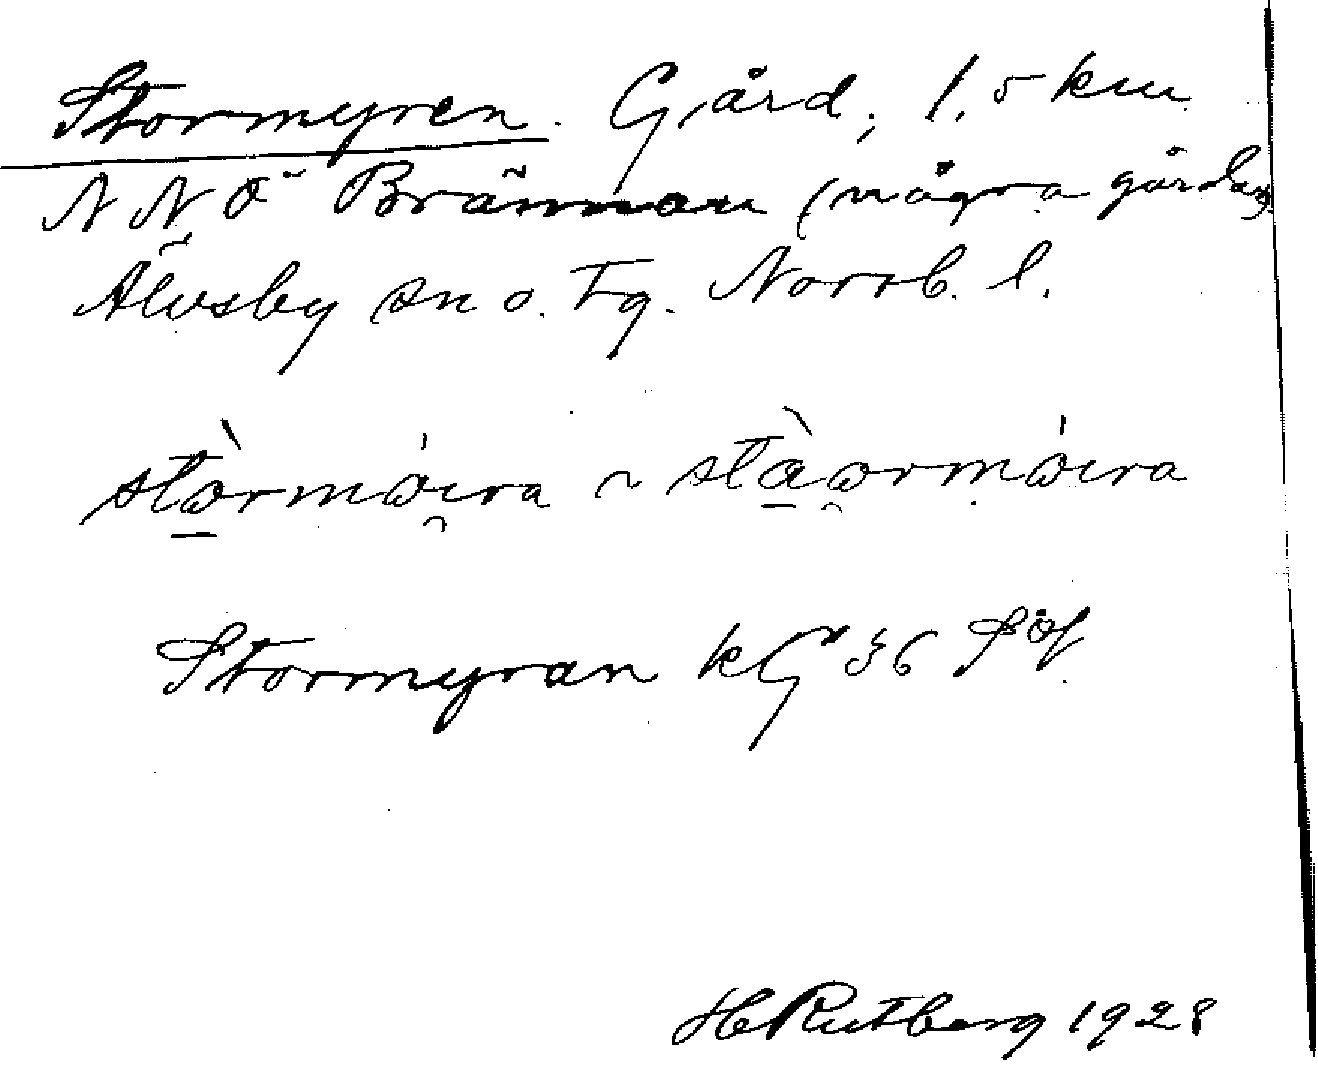 Stormyren. Gård, 1,5 km
NNÖ Brännan (några gårdar)
Älvsby sn o. tg. Norrb. l.
stòrmɷ́ira ~ stàɷrmɷ́ira
Stormyran kG 36 Söf.
H Rutberg 1928